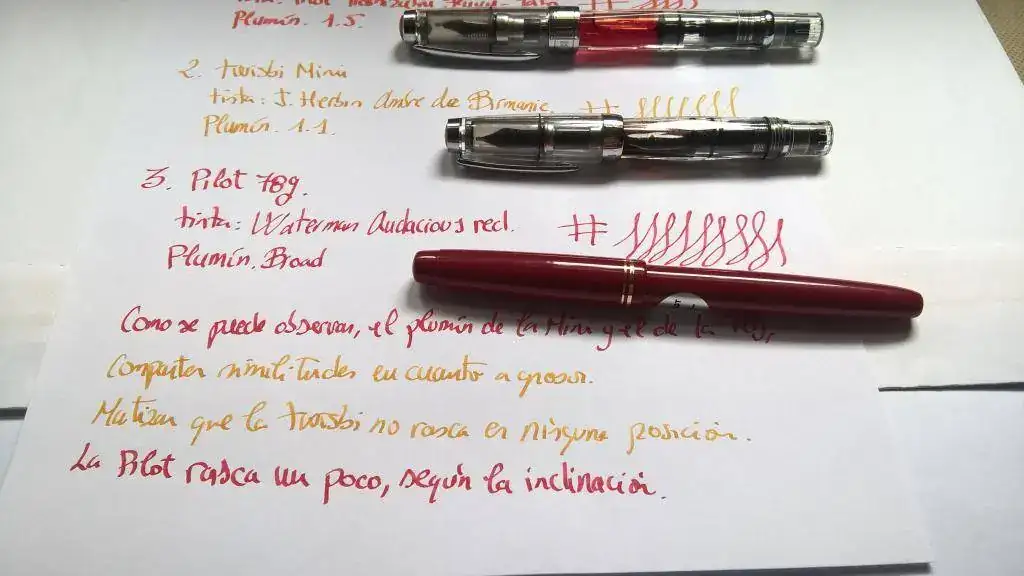 Plumín. 1.5.
2. twisbi Mini
tinta: J. Herbin Ambre de Birmanie #
Plumín. 1.1.
3. Pilot 78g.
tinta: Waterman Audacious red. #
Plumín. Broad
Como se puede observar, el plumín de la Mini y el de la 78g,
Comparten similitudes en cuanto a grosor.
Matizar que la twisbi no rasca en ninguna posición.
La Pilot rasca un poco, según la inclinación.